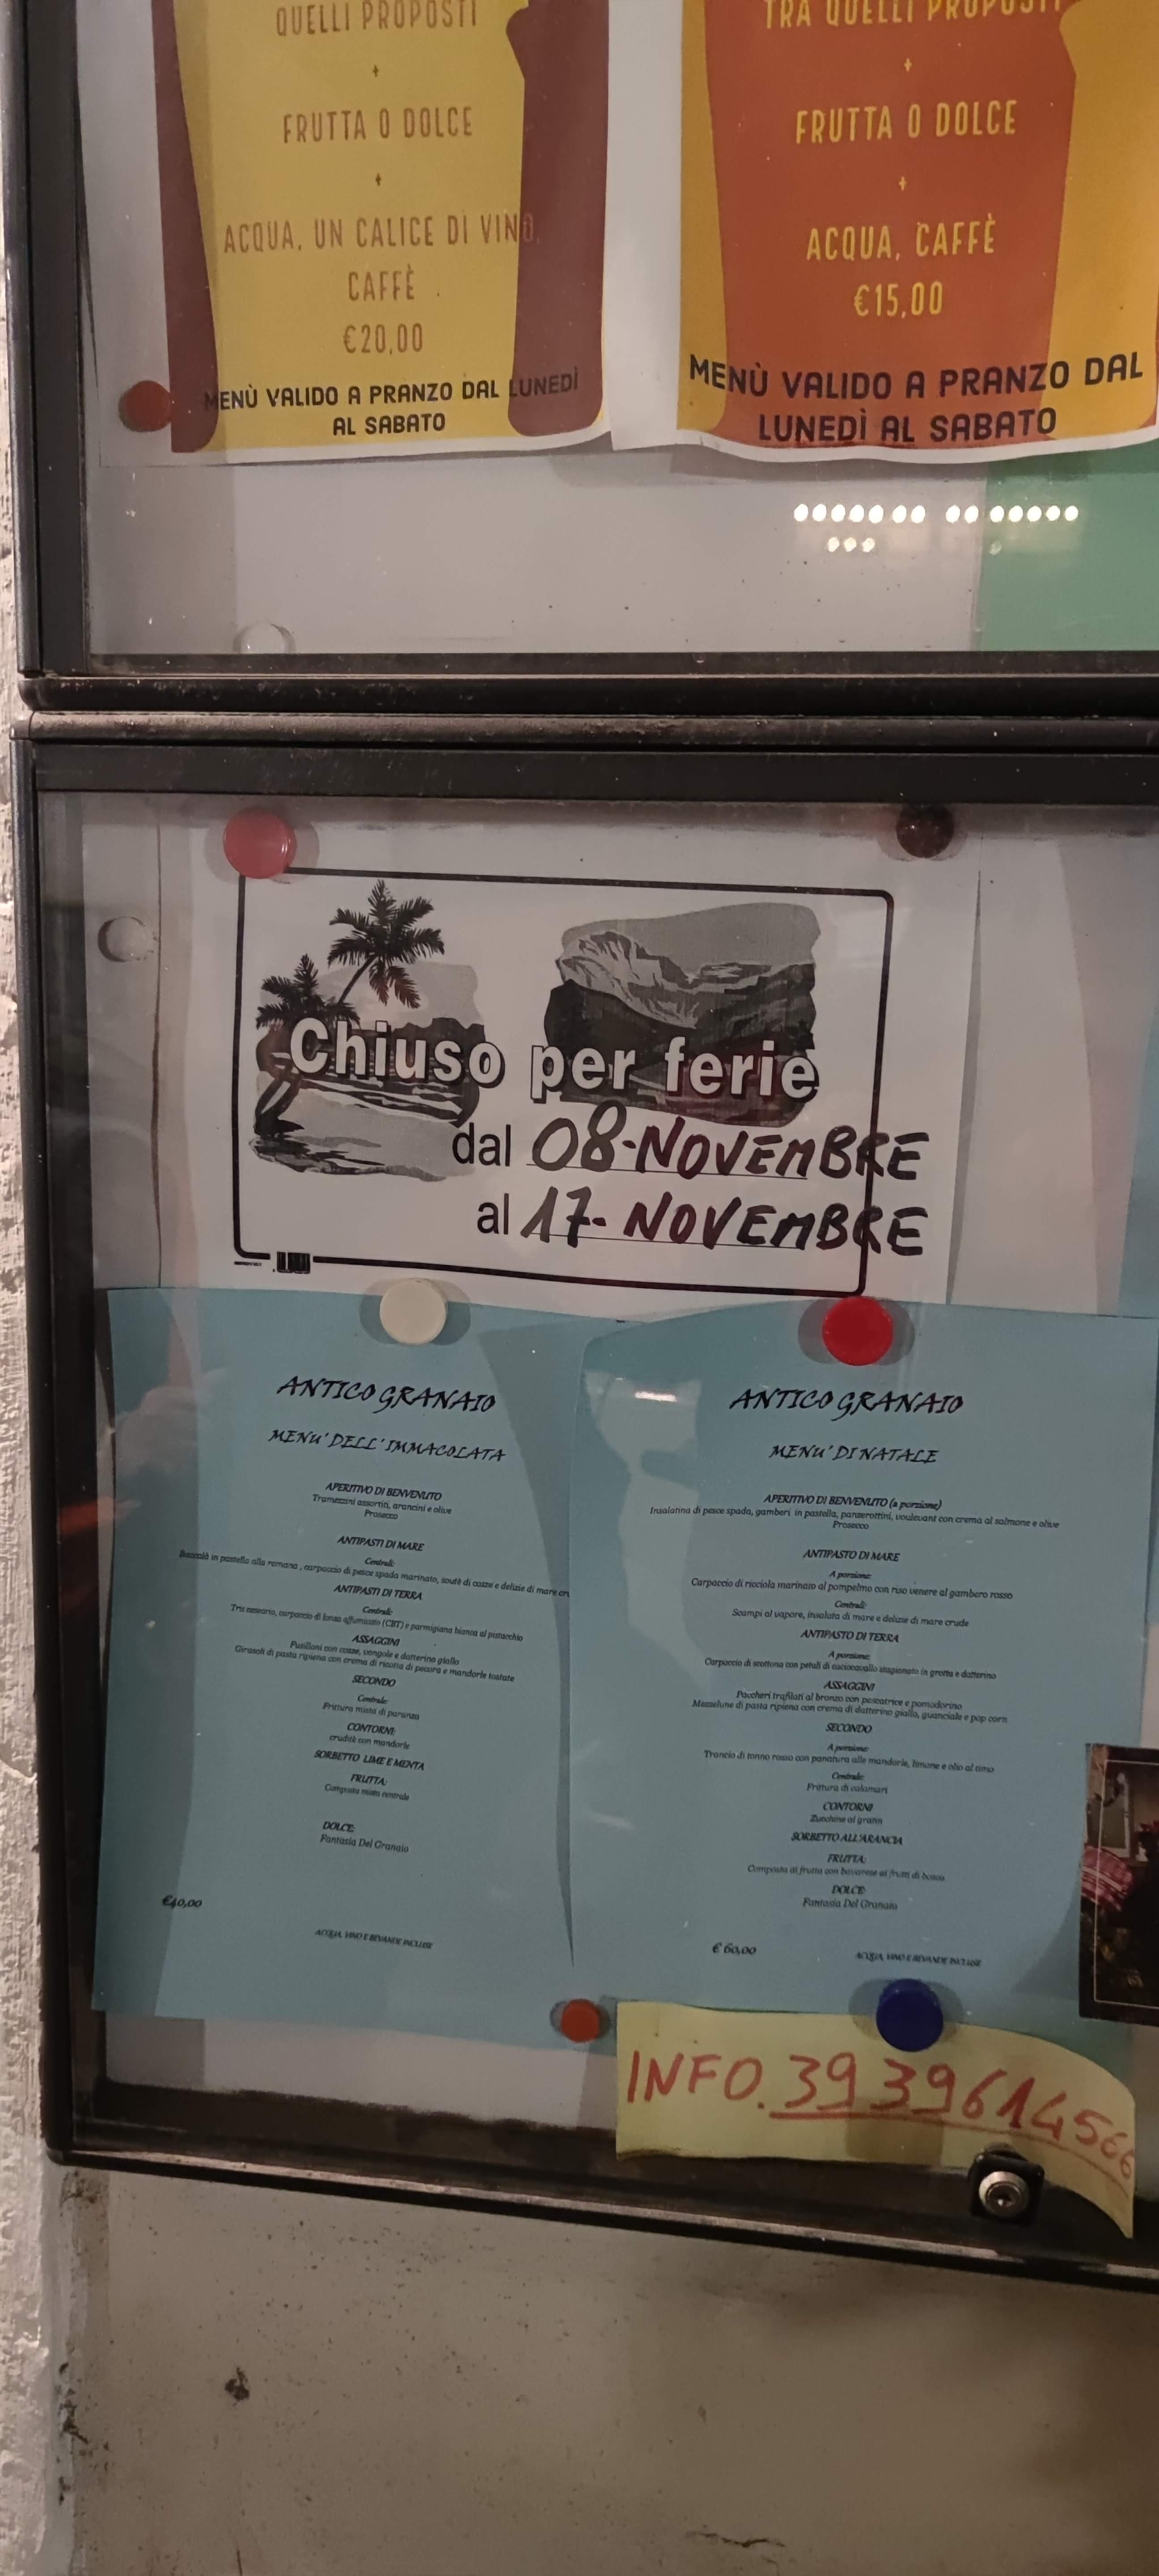 QUELLI PROPOSTI
+
FRUTTA O DOLCE
+
ACQUA, UN CALICE DI VINO,
CAFFÈ
€20,00
MENÙ VALIDO A PRANZO DAL LUNEDÌ
AL SABATO
TRA QUELLI PROPOSTI
+
FRUTTA O DOLCE
+
ACQUA, CAFFÈ
€15,00
MENÙ VALIDO A PRANZO DAL
LUNEDÌ AL SABATO
Chiuso per ferie
dal 08-NOVEMBRE
al 17-NOVEMBRE
ANTICO GRANAIO
MENU' DELL'IMMACOLATA
APERITIVO DI BENVENUTO
Tramezzini assortiti, arancini e olive
Prosecco
ANTIPASTI DI MARE
Centrali:
Baccalà in pastella alla romana , carpaccio di pesce spada marinato, soutè di cozze e delizie di mare cru
ANTIPASTI DI TERRA
Centrali:
Tris caseario, carpaccio di lonza affumicato (CBT) e parmigiana bianca al pistacchio
ASSAGGINI
Fusilloni con cozze, vongole e datterino giallo
Girasoli di pasta ripiena con crema di ricotta di pecora e mandorle tostate
SECONDO
Centrale:
Frittura mista di paranza
CONTORNI:
crudità con mandorle
SORBETTO LIME E MENTA
FRUTTA:
Composta mista centrale
DOLCE:
Fantasia Del Granaio
€40,00
ACQUA, VINO E BEVANDE INCLUSE
ANTICO GRANAIO
MENU' DI NATALE
APERITIVO DI BENVENUTO (a porzione)
Insalatina di pesce spada, gamberi in pastella, panzerottini, voulevant con crema al salmone e olive
Prosecco
ANTIPASTO DI MARE
A porzione:
Carpaccio di ricciola marinato al pompelmo con riso venere al gambero rosso
Centrali:
Scampi al vapore, insalata di mare e delizie di mare crude
ANTIPASTO DI TERRA
A porzione:
Carpaccio di scottona con petali di caciocavallo stagionato in grotta e datterino
ASSAGGINI
Paccheri trafilati al bronzo con pescatrice e pomodorino
Mezzelune di pasta ripiena con crema di datterino giallo, guanciale e pop corn
SECONDO
A porzione:
Trancio di tonno rosso con panatura alle mandorle, limone e olio al timo
Centrale:
Frittura di calamari
CONTORNI
Zucchine al gratin
SORBETTO ALL'ARANCIA
FRUTTA:
Composta di frutta con bavarese ai frutti di bosco
DOLCE:
Fantasia Del Granaio
€ 60,00
ACQUA, VINO E BEVANDE INCLUSE
INFO. 3939614566